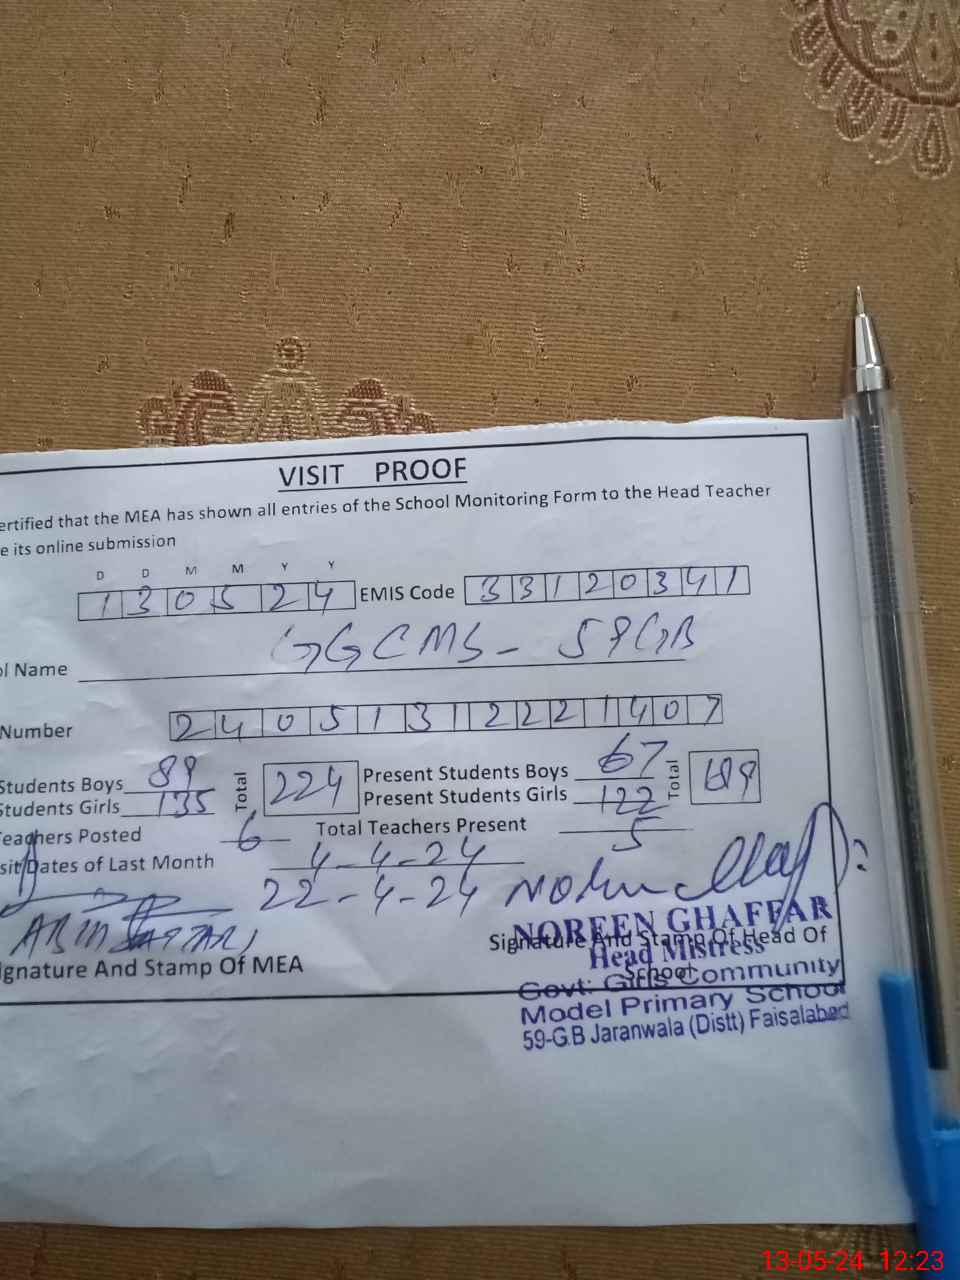 VISIT PROOF
ertified that the MEA has shown all entries of the School Monitoring Form to the Head Teacher
e its online submission
D D M M Y Y
1 3 0 5 2 4 EMIS Code 3 3 1 2 0 3 4 1
ol Name GGCMS - 59GB
Number 2 4 0 5 1 3 1 2 2 2 1 4 0 7
Students Boys 89 Total 224 Present Students Boys 67 Total 189
Students Girls 135 Present Students Girls 122
eachers Posted 6 Total Teachers Present 5
sit Dates of Last Month 4-4-24
22-4-24
NOREEN GHAFFAR
Signature And Stamp Of Head Of
Head Mistress
School
ignature And Stamp Of MEA
Govt: Girls Community
Model Primary School
59-G.B Jaranwala (Distt) Faisalabad
13-05-24 12:23